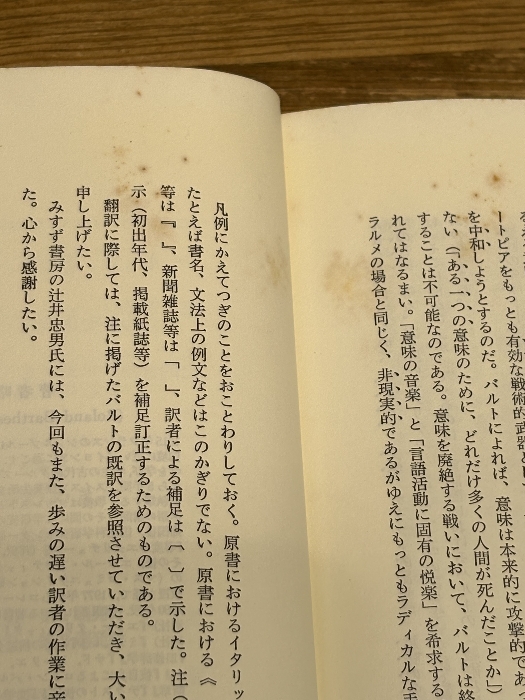 ートピアをもっとも有効な戦術的武器とし
を中和しようとするのだ。バルトによれば、意味は本来的に攻撃的であ
ない（「ある一つの意味のために、どれだけ多くの人間が死んだことか」）
することは不可能なのである。意味を廃絶する戦いにおいて、バルトは終
れてはなるまい。「意味の音楽」と「言語活動に固有の悦楽」を希求する
ラルメの場合と同じく、非現実的であるがゆえにもっともラディカルな
凡例にかえてつぎのことをおことわりしておく。原書におけるイタリッ
たとえば書名、文法上の例文などはこのかぎりでない。原書における《
等は『　』、新聞雑誌等は「　」、訳者による補足は〔　〕で示した。注（
示（初出年代、掲載紙誌等）を補足訂正するためのものである。
翻訳に際しては、注に掲げたバルトの既訳を参照させていただき、大い
申し上げたい。
みすず書房の辻井忠男氏には、今回もまた、歩みの遅い訳者の作業に
た。心から感謝したい。